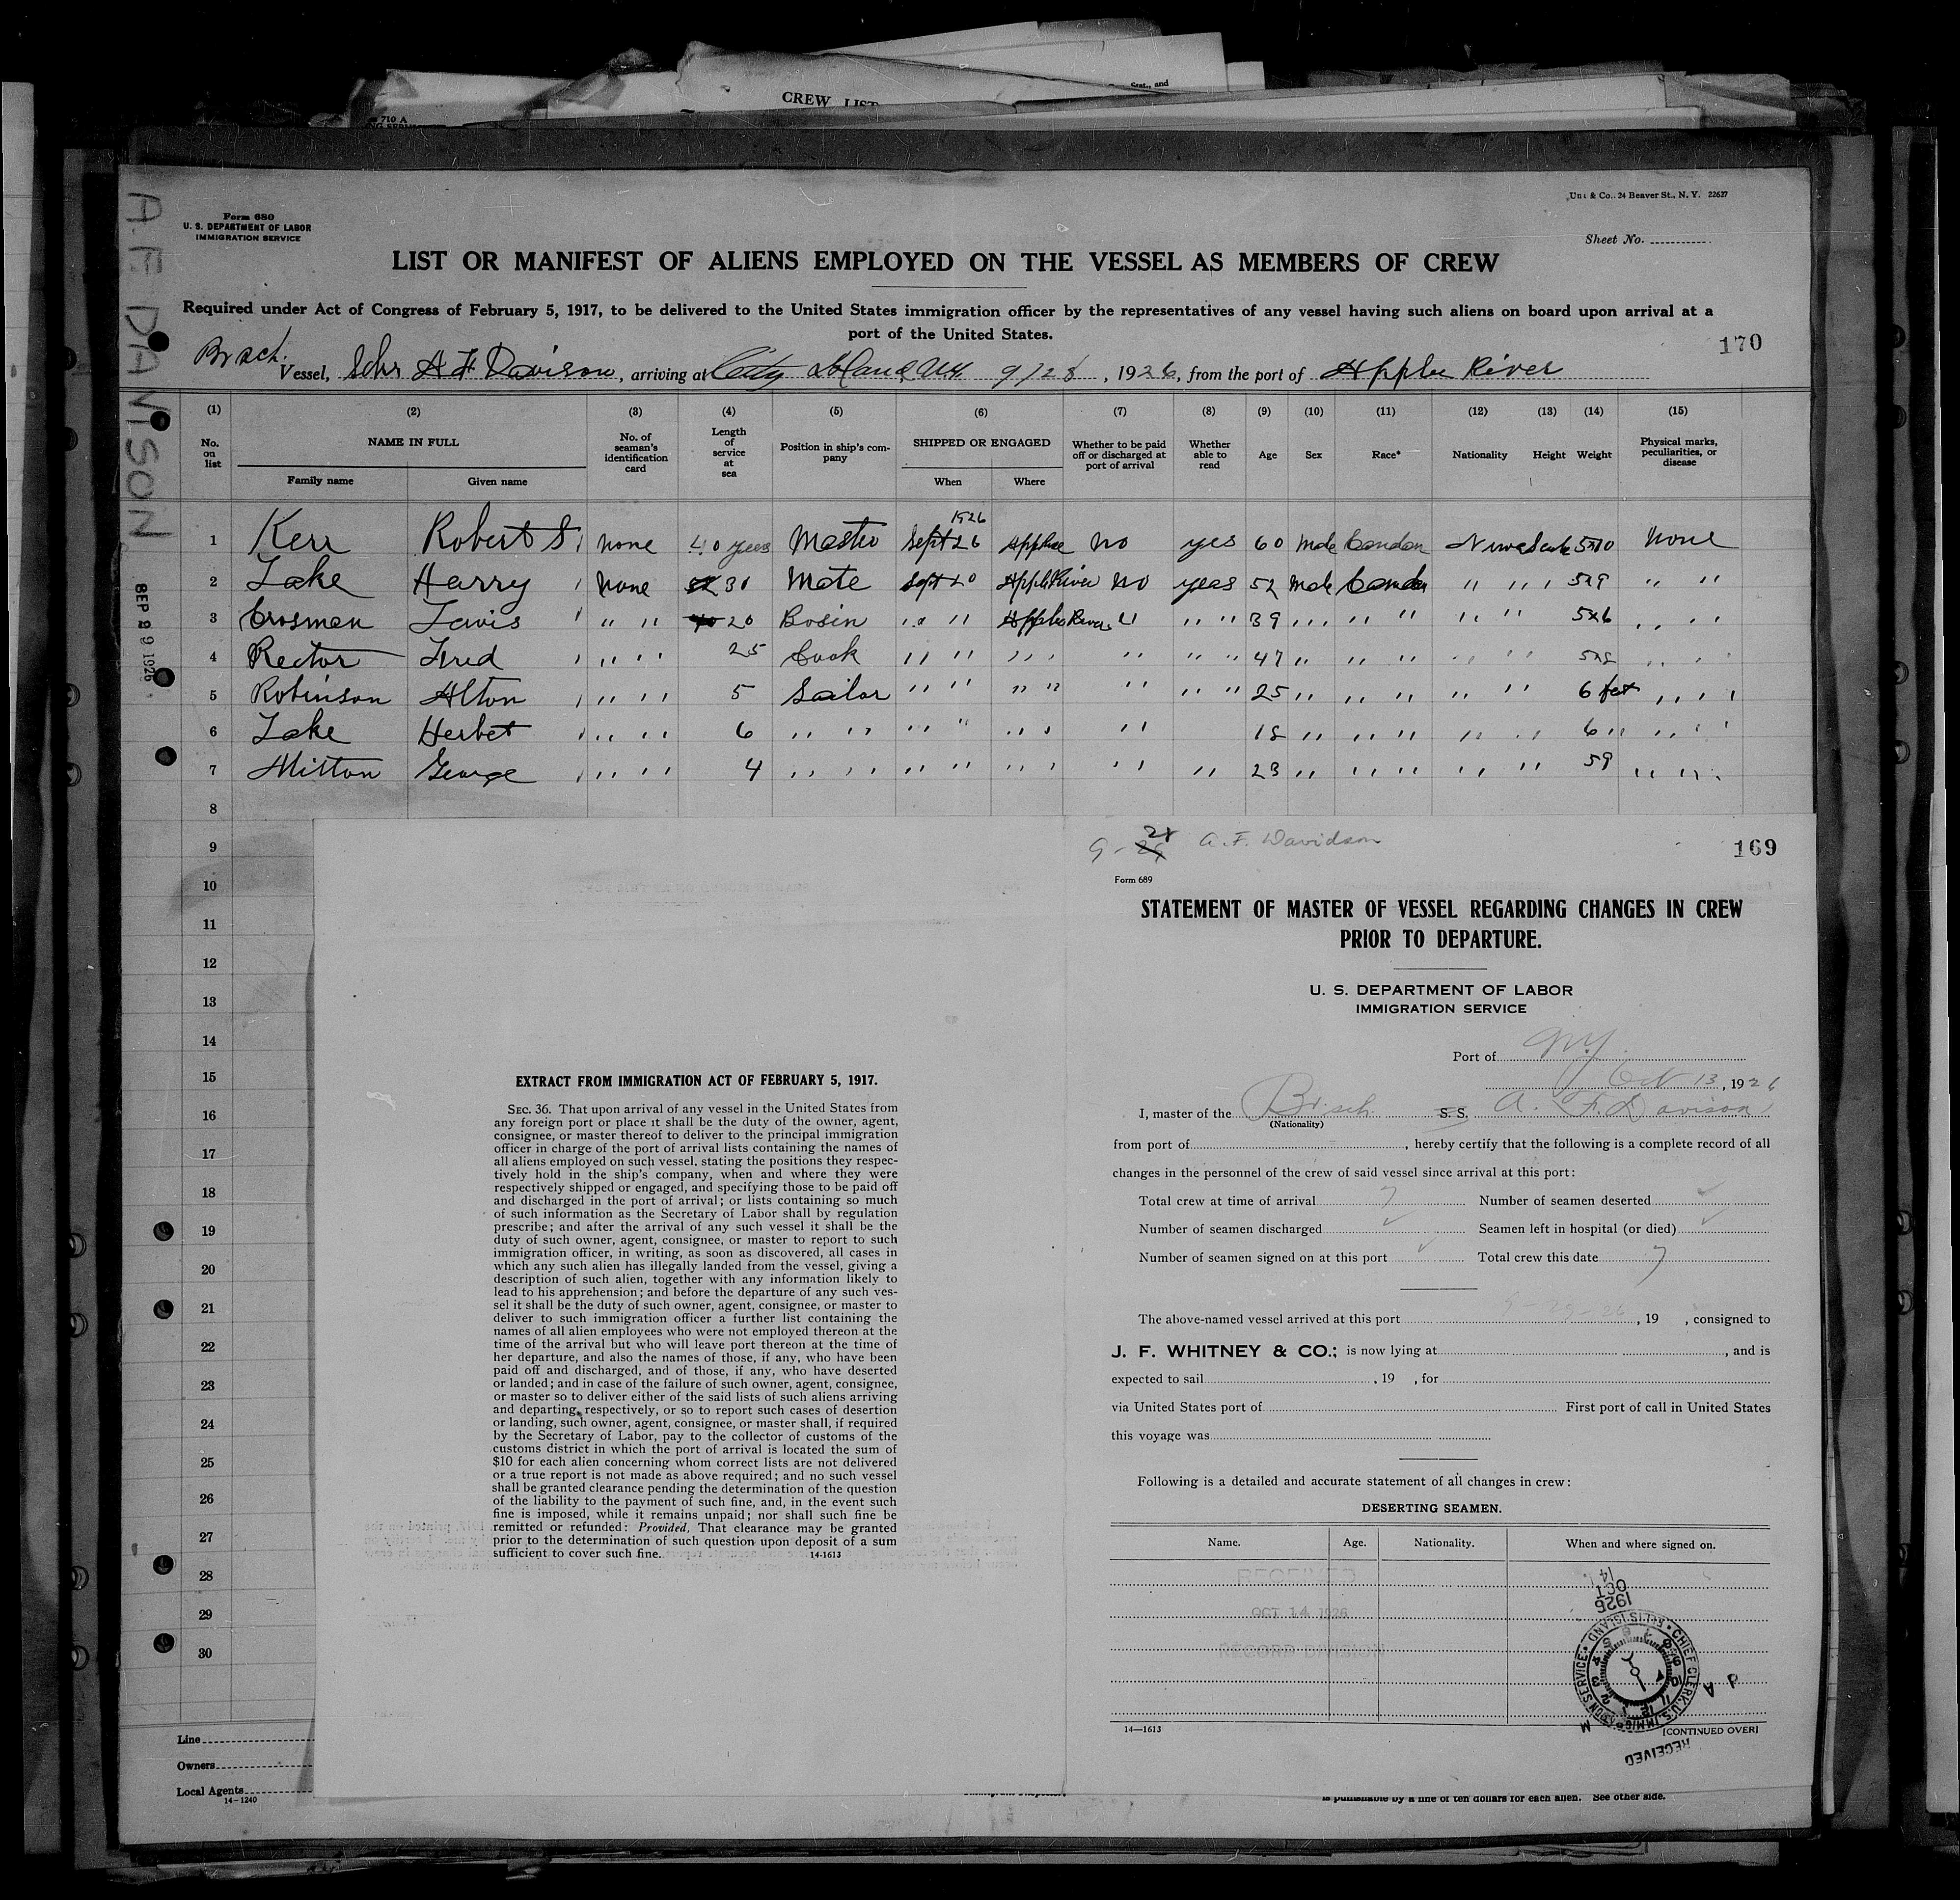 CREW LIST
Form 680
U. S. DEPARTMENT OF LABOR
IMMIGRATION SERVICE
& Co., 24 Beaver St., N. Y. 22627
Sheet No.
LIST OR MANIFEST OF ALIENS EMPLOYED ON THE VESSEL AS MEMBERS OF CREW
Required under Act of Congress of February 5, 1917, to be delivered to the United States immigration officer by the representatives of any vessel having such aliens on board upon arrival at a
port of the United States.
170
Br sch.
Vessel, Schr A F Davison, arriving at City Island NY. 9/28, 1926, from the port of Apple River
A. F. DAVISON
SEP 29 1926
(1) (2) (3) (4) (5) (6) (7) (8) (9) (10) (11) (12) (13) (14) (15)
No. on list NAME IN FULL Family name Given name No. of seaman's identification card Length of service at sea Position in ship's company SHIPPED OR ENGAGED When Where Whether to be paid off or discharged at port of arrival Whether able to read Age Sex Race* Nationality Height Weight Physical marks, peculiarities, or disease
1926
1 Kerr Robert S. None 40 years Master Sept 26 No yes 60 Male 5x10 None
2 Lake Harry None 30 Mate Sept 20 Apple River No years 52 Male " " " 5x9 " "
3 Crosman Lewis " " 20 Bosin " " Apple River " " " 39 " " " " " " 5x6 " "
4 Rector Fred " " 25 Cook " " " " " " " 47 " " " " " 5x8 " "
5 Robinson Alton " " 5 Sailor " " " " " " " 25 " " " " " 6 feet " "
6 Lake Herbet " " 6 " " " " " " " 18 " " " " " 6 " " "
7 Mitton George " " 4 " " " " " " " " 23 " " " " " 59 " "
8
9
10
11
12
13
14
15
16
17
18
19
20
21
22
23
24
25
26
27
28
29
30
Line
Owners
Local Agents
14-1240
EXTRACT FROM IMMIGRATION ACT OF FEBRUARY 5, 1917.
SEC. 36. That upon arrival of any vessel in the United States from
any foreign port or place it shall be the duty of the owner, agent,
consignee, or master thereof to deliver to the principal immigration
officer in charge of the port of arrival lists containing the names of
all aliens employed on such vessel, stating the positions they respec-
tively hold in the ship's company, when and where they were
respectively shipped or engaged, and specifying those to be paid off
and discharged in the port of arrival; or lists containing so much
of such information as the Secretary of Labor shall by regulation
prescribe; and after the arrival of any such vessel it shall be the
duty of such owner, agent, consignee, or master to report to such
immigration officer, in writing, as soon as discovered, all cases in
which any such alien has illegally landed from the vessel, giving a
description of such alien, together with any information likely to
lead to his apprehension; and before the departure of any such ves-
sel it shall be the duty of such owner, agent, consignee, or master to
deliver to such immigration officer a further list containing the
names of all alien employees who were not employed thereon at the
time of the arrival but who will leave port thereon at the time of
her departure, and also the names of those, if any, who have been
paid off and discharged, and of those, if any, who have deserted
or landed; and in case of the failure of such owner, agent, consignee,
or master so to deliver either of the said lists of such aliens arriving
and departing, respectively, or so to report such cases of desertion
or landing, such owner, agent, consignee, or master shall, if required
by the Secretary of Labor, pay to the collector of customs of the
customs district in which the port of arrival is located the sum of
$10 for each alien concerning whom correct lists are not delivered
or a true report is not made as above required; and no such vessel
shall be granted clearance pending the determination of the question
of the liability to the payment of such fine, and, in the event such
fine is imposed, while it remains unpaid; nor shall such fine be
remitted or refunded: Provided, That clearance may be granted
prior to the determination of such question upon deposit of a sum
sufficient to cover such fine. 14-1613
9- 28 A. F. Davidson
169
Form 689
STATEMENT OF MASTER OF VESSEL REGARDING CHANGES IN CREW
PRIOR TO DEPARTURE.
U. S. DEPARTMENT OF LABOR
IMMIGRATION SERVICE
Port of N.Y.
Oct 13, 1926
I, master of the Br. sch. S. S. A. F. Davison
(Nationality)
from port of , hereby certify that the following is a complete record of all
changes in the personnel of the crew of said vessel since arrival at this port:
Total crew at time of arrival 7 Number of seamen deserted ✓
Number of seamen discharged ✓ Seamen left in hospital (or died) ✓
Number of seamen signed on at this port ✓ Total crew this date 7
The above-named vessel arrived at this port 9-29-26, 19 , consigned to
J. F. WHITNEY & CO.; is now lying at , and is
expected to sail , 19 , for
via United States port of First port of call in United States
this voyage was
Following is a detailed and accurate statement of all changes in crew:
DESERTING SEAMEN.
Name. Age. Nationality. When and where signed on.
RECEIVED
OCT 14 1926
RECORD DIVISION
1926 OCT 14
CHIEF CLERK, U.S. IMMIGRATION SERVICE ELLIS ISLAND
RECEIVED
14—1613 [CONTINUED OVER]
is punishable by a fine of ten dollars for each alien. See other side.